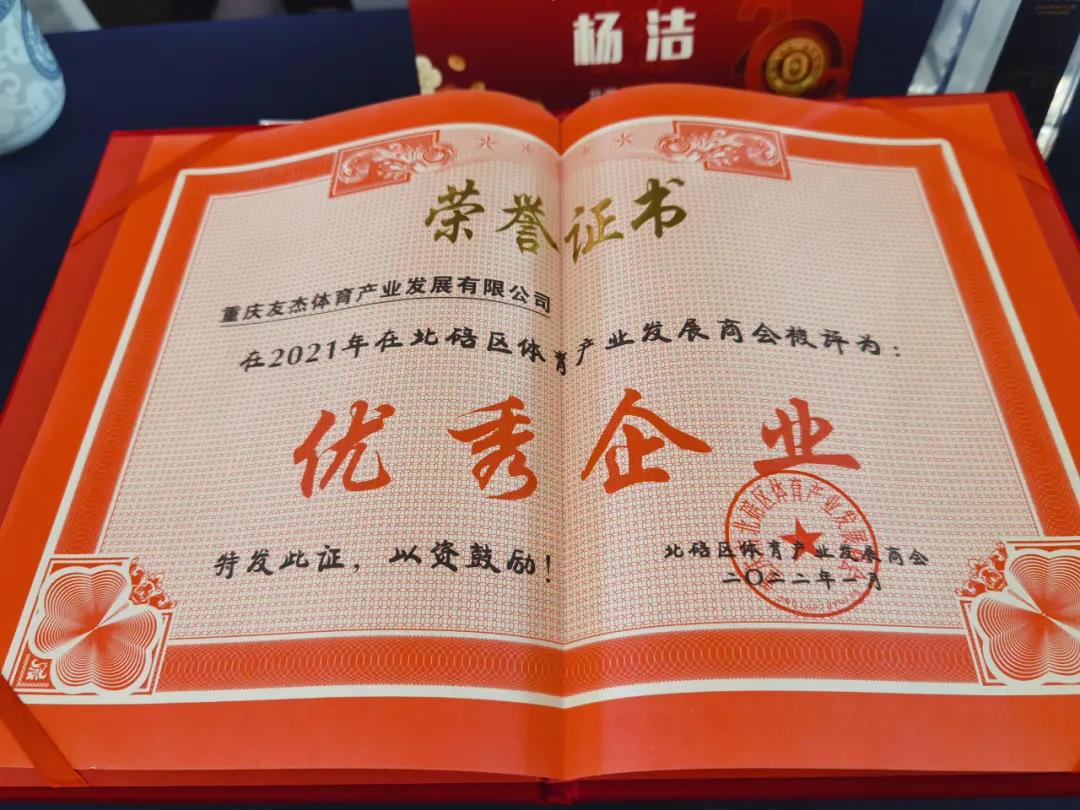 杨洁
荣誉证书
重庆友杰体育产业发展有限公司
在2021年在北碚区体育产业发展商会被评为：
优秀企业
特发此证，以资鼓励！
北碚区体育产业发展商会
二〇二二年一月
北碚区体育产业发展商会